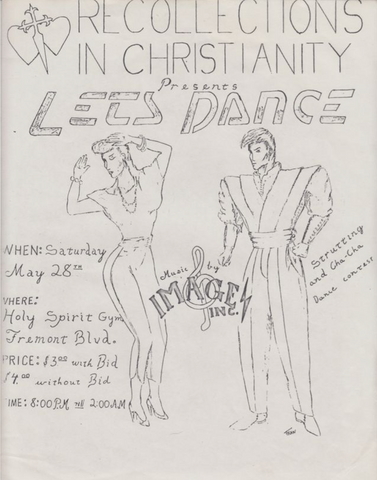 RECOLLECTIONS
IN CHRISTIANITY
Presents
LETS DANCE
WHEN: Saturday
May 28TH
WHERE:
Holy Spirit Gym
Fremont Blvd.
PRICE: $3.00 with Bid
$4.00 without Bid
TIME: 8:00 P.M till 2:00 A.M
Music by
IMAGE INC.
Strutting
and Cha-Cha
Dance contest